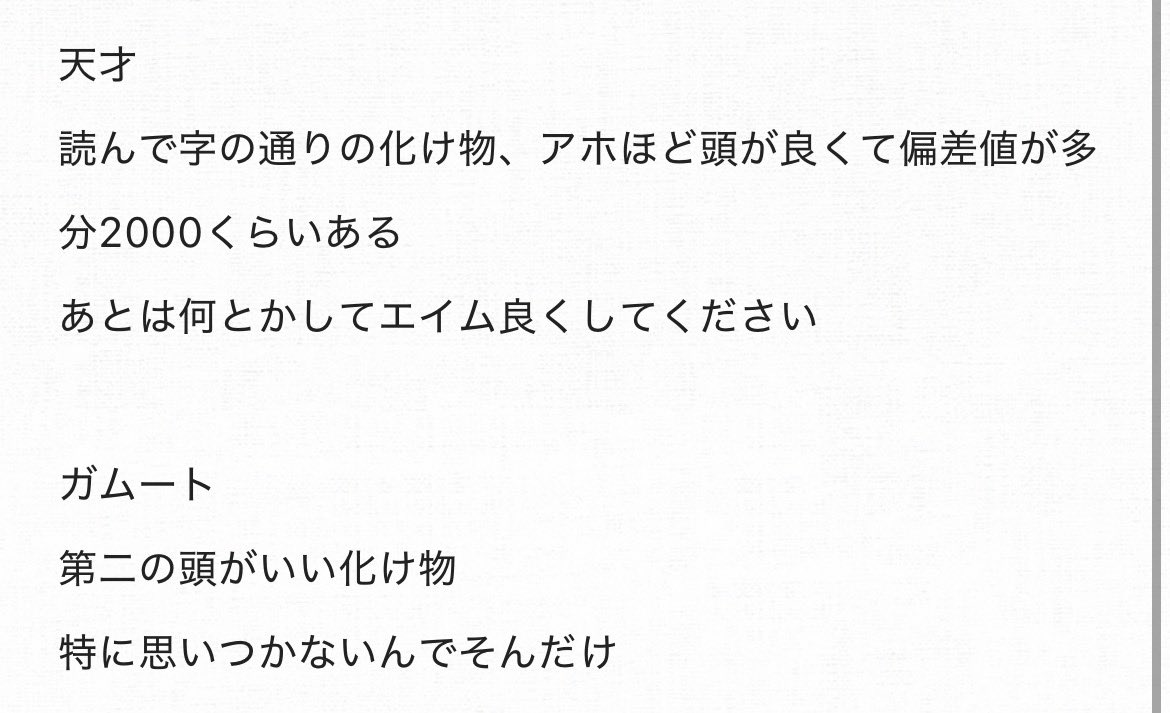 天才
読んで字の通りの化け物、アホほど頭が良くて偏差値が多
分2000くらいある
あとは何とかしてエイム良くしてください
ガムート
第二の頭がいい化け物
特に思いつかないんでそんだけ